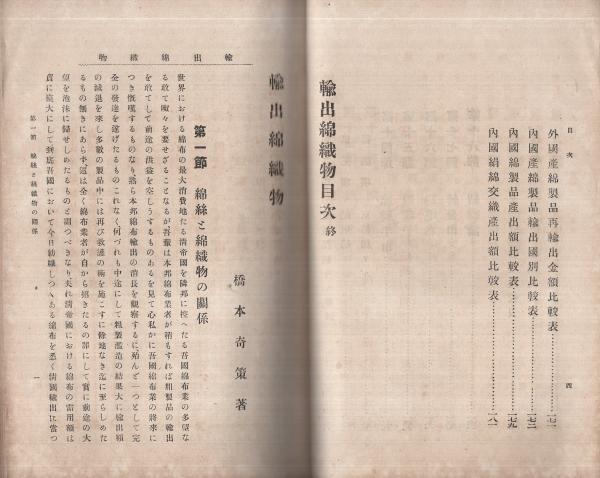 目次
四
外國產綿製品再輸出金額比較表…………一七一
內國產綿製品輸出國別比較表…………一七二
內國綿製品產出額比較表…………一七九
內國絹綿交織產出額比較表…………一八一
輸出綿織物目次 終
輸出綿織物
輸出綿織物
橋本奇策著
第一節 綿絲と綿織物の關係
世界における綿布の最大消費地たる淸帝國を隣邦に控へたる吾國綿布業の多望な
る敢て喋々を要せざることなるが吾輩は本邦綿布業者が稍もすれば粗製品の輸出
を敢てして前途の洪益を空しうするものあるを見て心私かに吾國綿布業の將來に
つき慨嘆するものなり熟ら本邦綿布輸出の消長を觀察するに殆んど一つとして完
全の發達を遂げたるものこれなく何づれも中途にして粗製濫造の結果大に輸出額
の減退を來し多數の製品中には再び救護の術を施こすに餘地なき迄に至らしめた
るもの無きにあらず這は全く綿布業者が自から招きたるの罪にして實に前途の大
望を泡沫に歸せしめたるものと謂つべきなり夫れ淸帝國における綿布の需用額は
眞に龐大にして到底吾國において今日紡織しつゝある綿布を悉く淸國輸出に當つ
第一節 綿絲と綿織物の關係
一